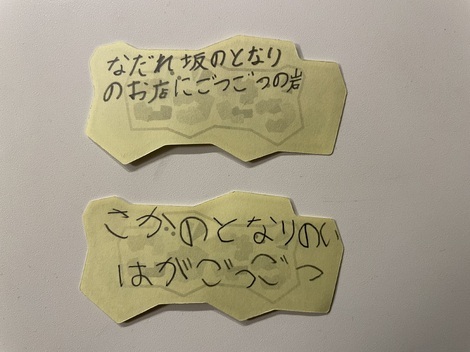 なだれ坂のとなり
のお店にごつごつの岩
さかのとなりのい
はがごつごつ